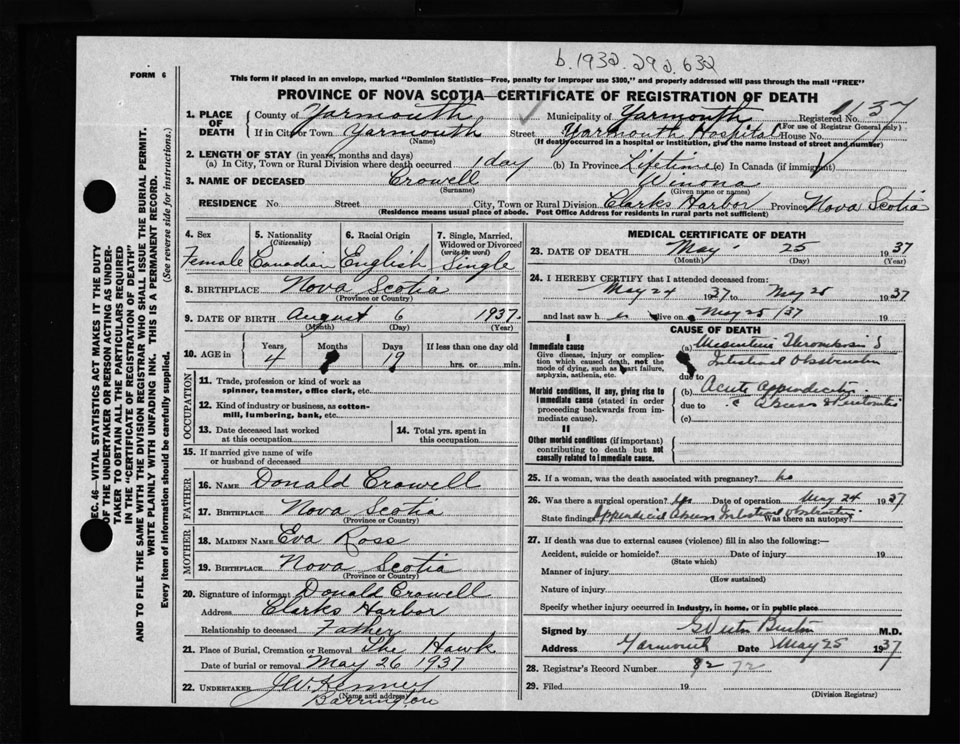 b. 1932. 292. 632
FORM 6
This form if placed in an envelope, marked "Dominion Statistics—Free, penalty for improper use $300," and properly addressed will pass through the mail "FREE"
PROVINCE OF NOVA SCOTIA—CERTIFICATE OF REGISTRATION OF DEATH
1. PLACE OF DEATH County of Yarmouth Municipality of Yarmouth Registered No. 1137
(For use of Registrar General only)
If in City or Town Yarmouth Street Yarmouth Hospital House No.
(Name) (If death occurred in a hospital or institution, give the name instead of street and number)
2. LENGTH OF STAY (in years, months and days)
(a) In City, Town or Rural Division where death occurred 1 day (b) In Province Lifetime (c) In Canada (if immigrant)
3. NAME OF DECEASED Crowell Winona
(Surname) (Given name or names)
RESIDENCE No. Street City, Town or Rural Division Clarks Harbor Province Nova Scotia
(Residence means usual place of abode. Post Office Address for residents in rural parts not sufficient)
4. Sex 5. Nationality (Citizenship) 6. Racial Origin 7. Single, Married, Widowed or Divorced (write the word)
Female Canadian English Single
8. BIRTHPLACE Nova Scotia
(Province or Country)
9. DATE OF BIRTH August 6 1937
(Month) (Day) (Year)
10. AGE in Years Months Days If less than one day old
4 19 hrs. or min.
OCCUPATION
11. Trade, profession or kind of work as spinner, teamster, office clerk, etc.
12. Kind of industry or business, as cotton-mill, lumbering, bank, etc.
13. Date deceased last worked at this occupation
14. Total yrs. spent in this occupation
15. If married give name of wife or husband of deceased
FATHER
16. NAME Donald Crowell
17. BIRTHPLACE Nova Scotia
(Province or Country)
MOTHER
18. MAIDEN NAME Eva Ross
19. BIRTHPLACE Nova Scotia
(Province or Country)
20. Signature of informant Donald Crowell
Address Clarks Harbor
Relationship to deceased Father
21. Place of Burial, Cremation or Removal The Hawk
Date of burial or removal May 26 1937
22. UNDERTAKER J.W. Kenney
(Name and address)
Barrington
MEDICAL CERTIFICATE OF DEATH
23. DATE OF DEATH May 25 1937
(Month) (Day) (Year)
24. I HEREBY CERTIFY that I attended deceased from:
May 24 1937 to May 25 1937
and last saw h er alive on May 25/37
CAUSE OF DEATH
I
Immediate cause
Give disease, injury or complication which caused death, not the mode of dying, such as heart failure, asphyxia, asthenia, etc.
(a) Mesenteric Thrombosis &
Intestinal Obstruction
due to
Morbid conditions, if any, giving rise to immediate cause (stated in order proceeding backwards from immediate cause).
(b) Acute Appendicitis
due to c Abscess & Peritonitis
(c)
II
Other morbid conditions (if important) contributing to death but not causally related to immediate cause.
25. If a woman, was the death associated with pregnancy? No
26. Was there a surgical operation? Yes Date of operation May 24 1937
State findings Appendicial Abscess Intestinal Obstruction Was there an autopsy?
27. If death was due to external causes (violence) fill in also the following:—
Accident, suicide or homicide? Date of injury 19
(State which)
Manner of injury
(How sustained)
Nature of injury
Specify whether injury occurred in industry, in home, or in public place
Signed by M.D.
Address Yarmouth Date May 25 1937
28. Registrar's Record Number 82 72
29. Filed 19
(Division Registrar)
SEC. 46—VITAL STATISTICS ACT MAKES IT THE DUTY
OF THE UNDERTAKER OR PERSON ACTING AS UNDER-
TAKER TO OBTAIN ALL THE PARTICULARS REQUIRED
IN THE "CERTIFICATE OF REGISTRATION OF DEATH"
AND TO FILE THE SAME WITH THE DIVISION REGISTRAR WHO SHALL ISSUE THE BURIAL PERMIT.
WRITE PLAINLY WITH UNFADING INK. THIS IS A PERMANENT RECORD.
Every item of information should be carefully supplied. (See reverse side for instructions.)